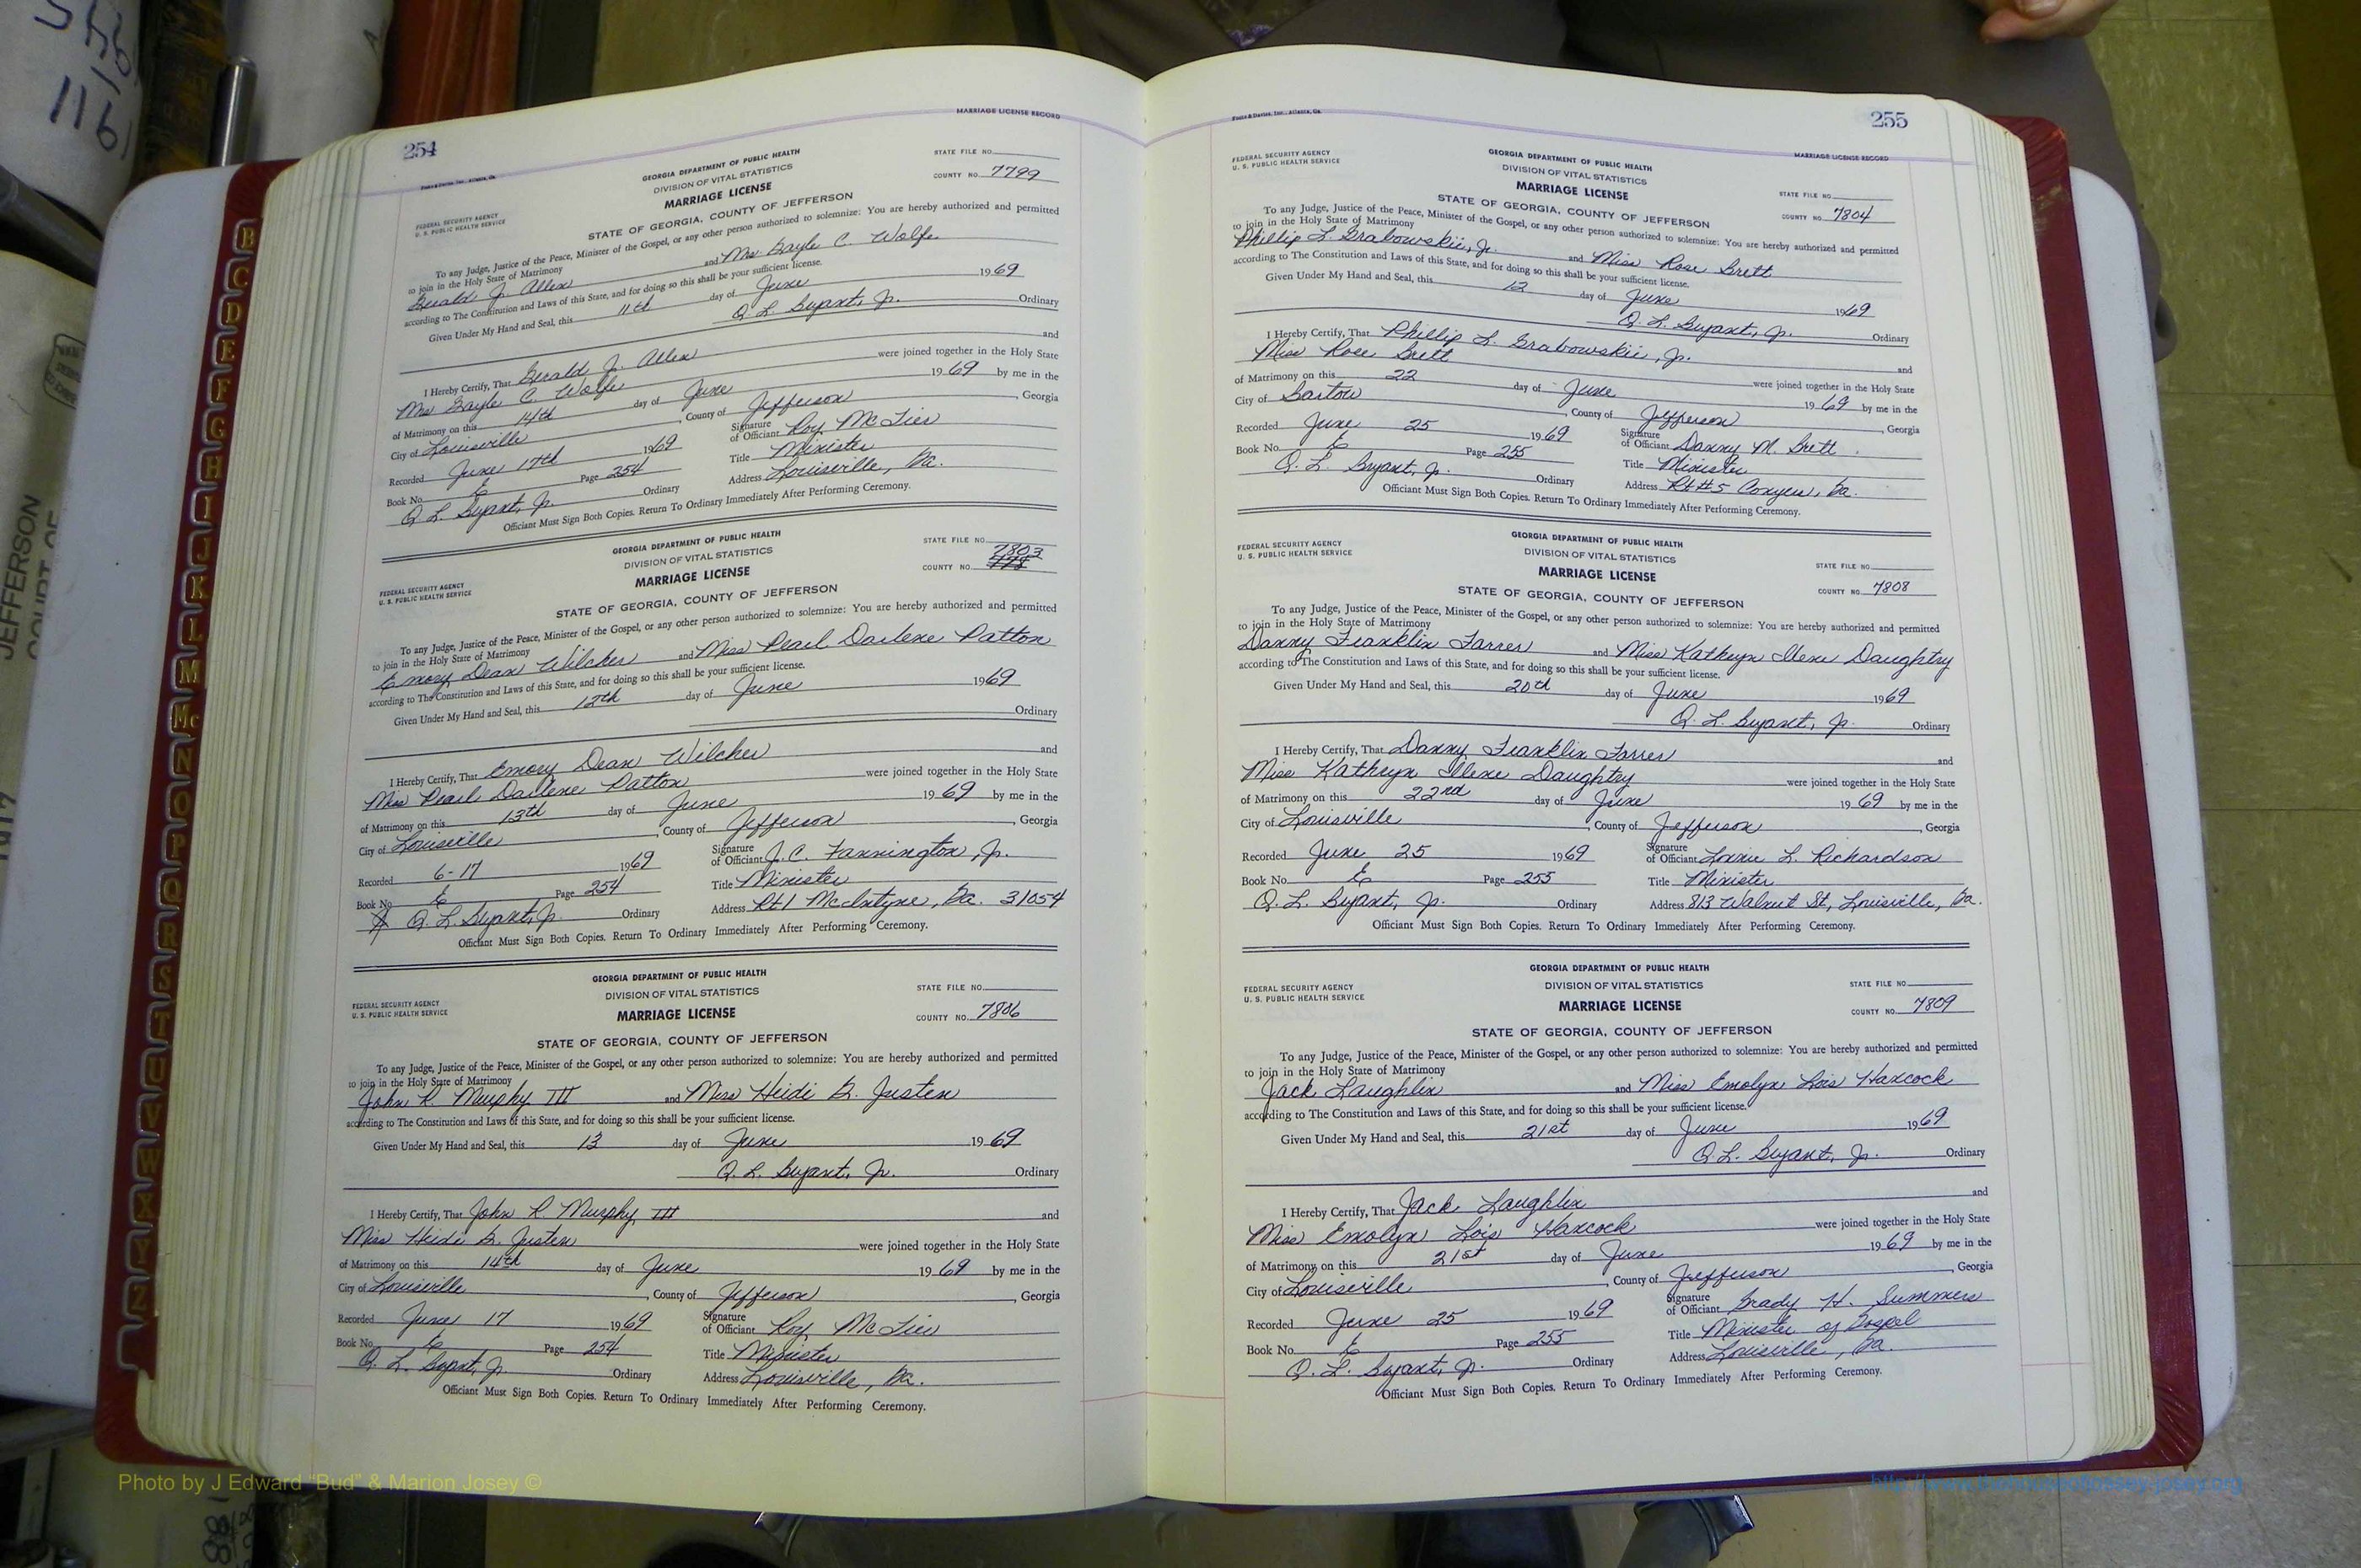 254
MARRIAGE LICENSE RECORD
GEORGIA DEPARTMENT OF PUBLIC HEALTH
DIVISION OF VITAL STATISTICS
MARRIAGE LICENSE
STATE OF GEORGIA, COUNTY OF JEFFERSON
STATE FILE NO.
COUNTY NO. 7799
FEDERAL SECURITY AGENCY
U. S. PUBLIC HEALTH SERVICE
To any Judge, Justice of the Peace, Minister of the Gospel, or any other person authorized to solemnize: You are hereby authorized and permitted
to join in the Holy State of Matrimony
Gerald J. Allen and Mrs. Gayle C. Wolfe
according to The Constitution and Laws of this State, and for doing so this shall be your sufficient license.
Given Under My Hand and Seal, this 11th day of June 1969
Q. L. Bryant, Jr. Ordinary
I Hereby Certify, That Gerald J. Allen and
Mrs Gayle C. Wolfe were joined together in the Holy State
of Matrimony on this 14th day of June 1969 by me in the
City of Louisville, County of Jefferson, Georgia
Recorded June 17th 1969 Signature of Officiant Roy McTier
Book No. E Page 254 Title Minister
Q. L. Bryant, Jr. Ordinary Address Louisville, Ga.
Officiant Must Sign Both Copies. Return To Ordinary Immediately After Performing Ceremony.
GEORGIA DEPARTMENT OF PUBLIC HEALTH
DIVISION OF VITAL STATISTICS
MARRIAGE LICENSE
STATE OF GEORGIA, COUNTY OF JEFFERSON
STATE FILE NO.
COUNTY NO. 7803
FEDERAL SECURITY AGENCY
U. S. PUBLIC HEALTH SERVICE
To any Judge, Justice of the Peace, Minister of the Gospel, or any other person authorized to solemnize: You are hereby authorized and permitted
to join in the Holy State of Matrimony
Emory Dean Wilcher and Miss Pearl Darlene Patton
according to The Constitution and Laws of this State, and for doing so this shall be your sufficient license.
Given Under My Hand and Seal, this 12th day of June 1969
Ordinary
I Hereby Certify, That Emory Dean Wilcher and
Miss Pearl Darlene Patton were joined together in the Holy State
of Matrimony on this 13th day of June 1969 by me in the
City of Louisville, County of Jefferson, Georgia
Recorded 6-17 1969 Signature of Officiant J. C. Fannington, Jr.
Book No E Page 254 Title Minister
Q. L. Bryant, Jr. Ordinary Address Rt 1 McIntyre, Ga. 31054
Officiant Must Sign Both Copies. Return To Ordinary Immediately After Performing Ceremony.
GEORGIA DEPARTMENT OF PUBLIC HEALTH
DIVISION OF VITAL STATISTICS
MARRIAGE LICENSE
STATE OF GEORGIA, COUNTY OF JEFFERSON
STATE FILE NO.
COUNTY NO. 7806
FEDERAL SECURITY AGENCY
U. S. PUBLIC HEALTH SERVICE
To any Judge, Justice of the Peace, Minister of the Gospel, or any other person authorized to solemnize: You are hereby authorized and permitted
to join in the Holy State of Matrimony
John R. Murphy III and Miss Heidi G. Justen
according to The Constitution and Laws of this State, and for doing so this shall be your sufficient license.
Given Under My Hand and Seal, this 13 day of June 1969
Q. L. Bryant, Jr. Ordinary
I Hereby Certify, That John R. Murphy III and
Miss Heidi G. Justen were joined together in the Holy State
of Matrimony on this 14th day of June 1969 by me in the
City of Louisville, County of Jefferson, Georgia
Recorded June 17 1969 Signature of Officiant Roy McTier
Book No. E Page 254 Title Minister
Q. L. Bryant, Jr. Ordinary Address Louisville, Ga.
Officiant Must Sign Both Copies. Return To Ordinary Immediately After Performing Ceremony.
255
MARRIAGE LICENSE RECORD
FEDERAL SECURITY AGENCY
U. S. PUBLIC HEALTH SERVICE
GEORGIA DEPARTMENT OF PUBLIC HEALTH
DIVISION OF VITAL STATISTICS
MARRIAGE LICENSE
STATE OF GEORGIA, COUNTY OF JEFFERSON
STATE FILE NO.
COUNTY NO. 7804
To any Judge, Justice of the Peace, Minister of the Gospel, or any other person authorized to solemnize: You are hereby authorized and permitted
to join in the Holy State of Matrimony
Phillip L. Grabowskii, Jr. and Miss Rose Brett
according to The Constitution and Laws of this State, and for doing so this shall be your sufficient license.
Given Under My Hand and Seal, this 12 day of June 1969
Q. L. Bryant, Jr. Ordinary
I Hereby Certify, That Phillip L. Grabowskii, Jr. and
Miss Rose Brett were joined together in the Holy State
of Matrimony on this 22 day of June 1969 by me in the
City of Bartow, County of Jefferson, Georgia
Recorded June 25 1969 Signature of Officiant Danny M. Brett
Book No. E Page 255 Title Minister
Q. L. Bryant, Jr. Ordinary Address Rt #5 Conyers, Ga.
Officiant Must Sign Both Copies. Return To Ordinary Immediately After Performing Ceremony.
FEDERAL SECURITY AGENCY
U. S. PUBLIC HEALTH SERVICE
GEORGIA DEPARTMENT OF PUBLIC HEALTH
DIVISION OF VITAL STATISTICS
MARRIAGE LICENSE
STATE OF GEORGIA, COUNTY OF JEFFERSON
STATE FILE NO.
COUNTY NO. 7808
To any Judge, Justice of the Peace, Minister of the Gospel, or any other person authorized to solemnize: You are hereby authorized and permitted
to join in the Holy State of Matrimony
Danny Franklin Farrer and Miss Kathryn Ilene Daughtry
according to The Constitution and Laws of this State, and for doing so this shall be your sufficient license.
Given Under My Hand and Seal, this 20th day of June 1969
Q. L. Bryant, Jr. Ordinary
I Hereby Certify, That Danny Franklin Farrer and
Miss Kathryn Ilene Daughtry were joined together in the Holy State
of Matrimony on this 22nd day of June 1969 by me in the
City of Louisville, County of Jefferson, Georgia
Recorded June 25 1969 Signature of Officiant Lonnie L. Richardson
Book No. E Page 255 Title Minister
Q. L. Bryant, Jr. Ordinary Address 813 Walnut St, Louisville, Ga.
Officiant Must Sign Both Copies. Return To Ordinary Immediately After Performing Ceremony.
FEDERAL SECURITY AGENCY
U. S. PUBLIC HEALTH SERVICE
GEORGIA DEPARTMENT OF PUBLIC HEALTH
DIVISION OF VITAL STATISTICS
MARRIAGE LICENSE
STATE OF GEORGIA, COUNTY OF JEFFERSON
STATE FILE NO.
COUNTY NO. 7809
To any Judge, Justice of the Peace, Minister of the Gospel, or any other person authorized to solemnize: You are hereby authorized and permitted
to join in the Holy State of Matrimony
Jack Laughlin and Miss Emolyn Lois Hancock
according to The Constitution and Laws of this State, and for doing so this shall be your sufficient license.
Given Under My Hand and Seal, this 21st day of June 1969
Q. L. Bryant, Jr. Ordinary
I Hereby Certify, That Jack Laughlin and
Miss Emolyn Lois Hancock were joined together in the Holy State
of Matrimony on this 21st day of June 1969 by me in the
City of Louiseville, County of Jefferson, Georgia
Recorded June 25 1969 Signature of Officiant Grady H. Summers
Book No. E Page 255 Title Minister of Gospel
Q. L. Bryant, Jr. Ordinary Address Louisville, Ga.
Officiant Must Sign Both Copies. Return To Ordinary Immediately After Performing Ceremony.
B
C
D
E
F
G
H
I
J
K
L
M
Mc
N
O
P
Q
R
S
T
U
V
W
X
Y
Z
JEFFERSON
COURT OF
Photo by J Edward “Bud” & Marion Josey ©